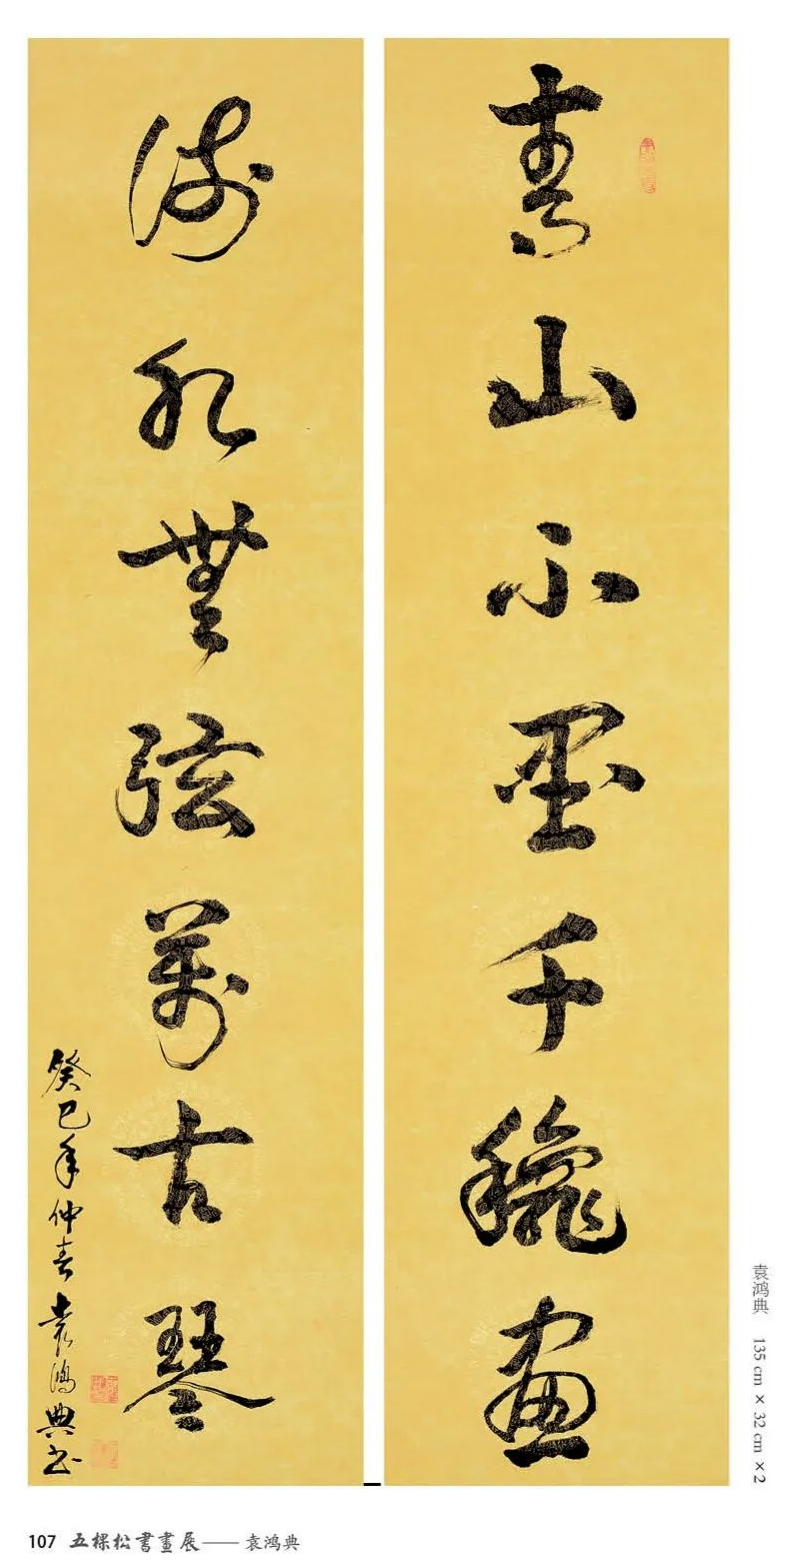 青山不墨千龝畫
流水無弦萬古琴
癸巳年仲春袁鴻典书
袁鸿典 135 cm × 32 cm ×2
107 五棵松書畫展—— 袁鸿典